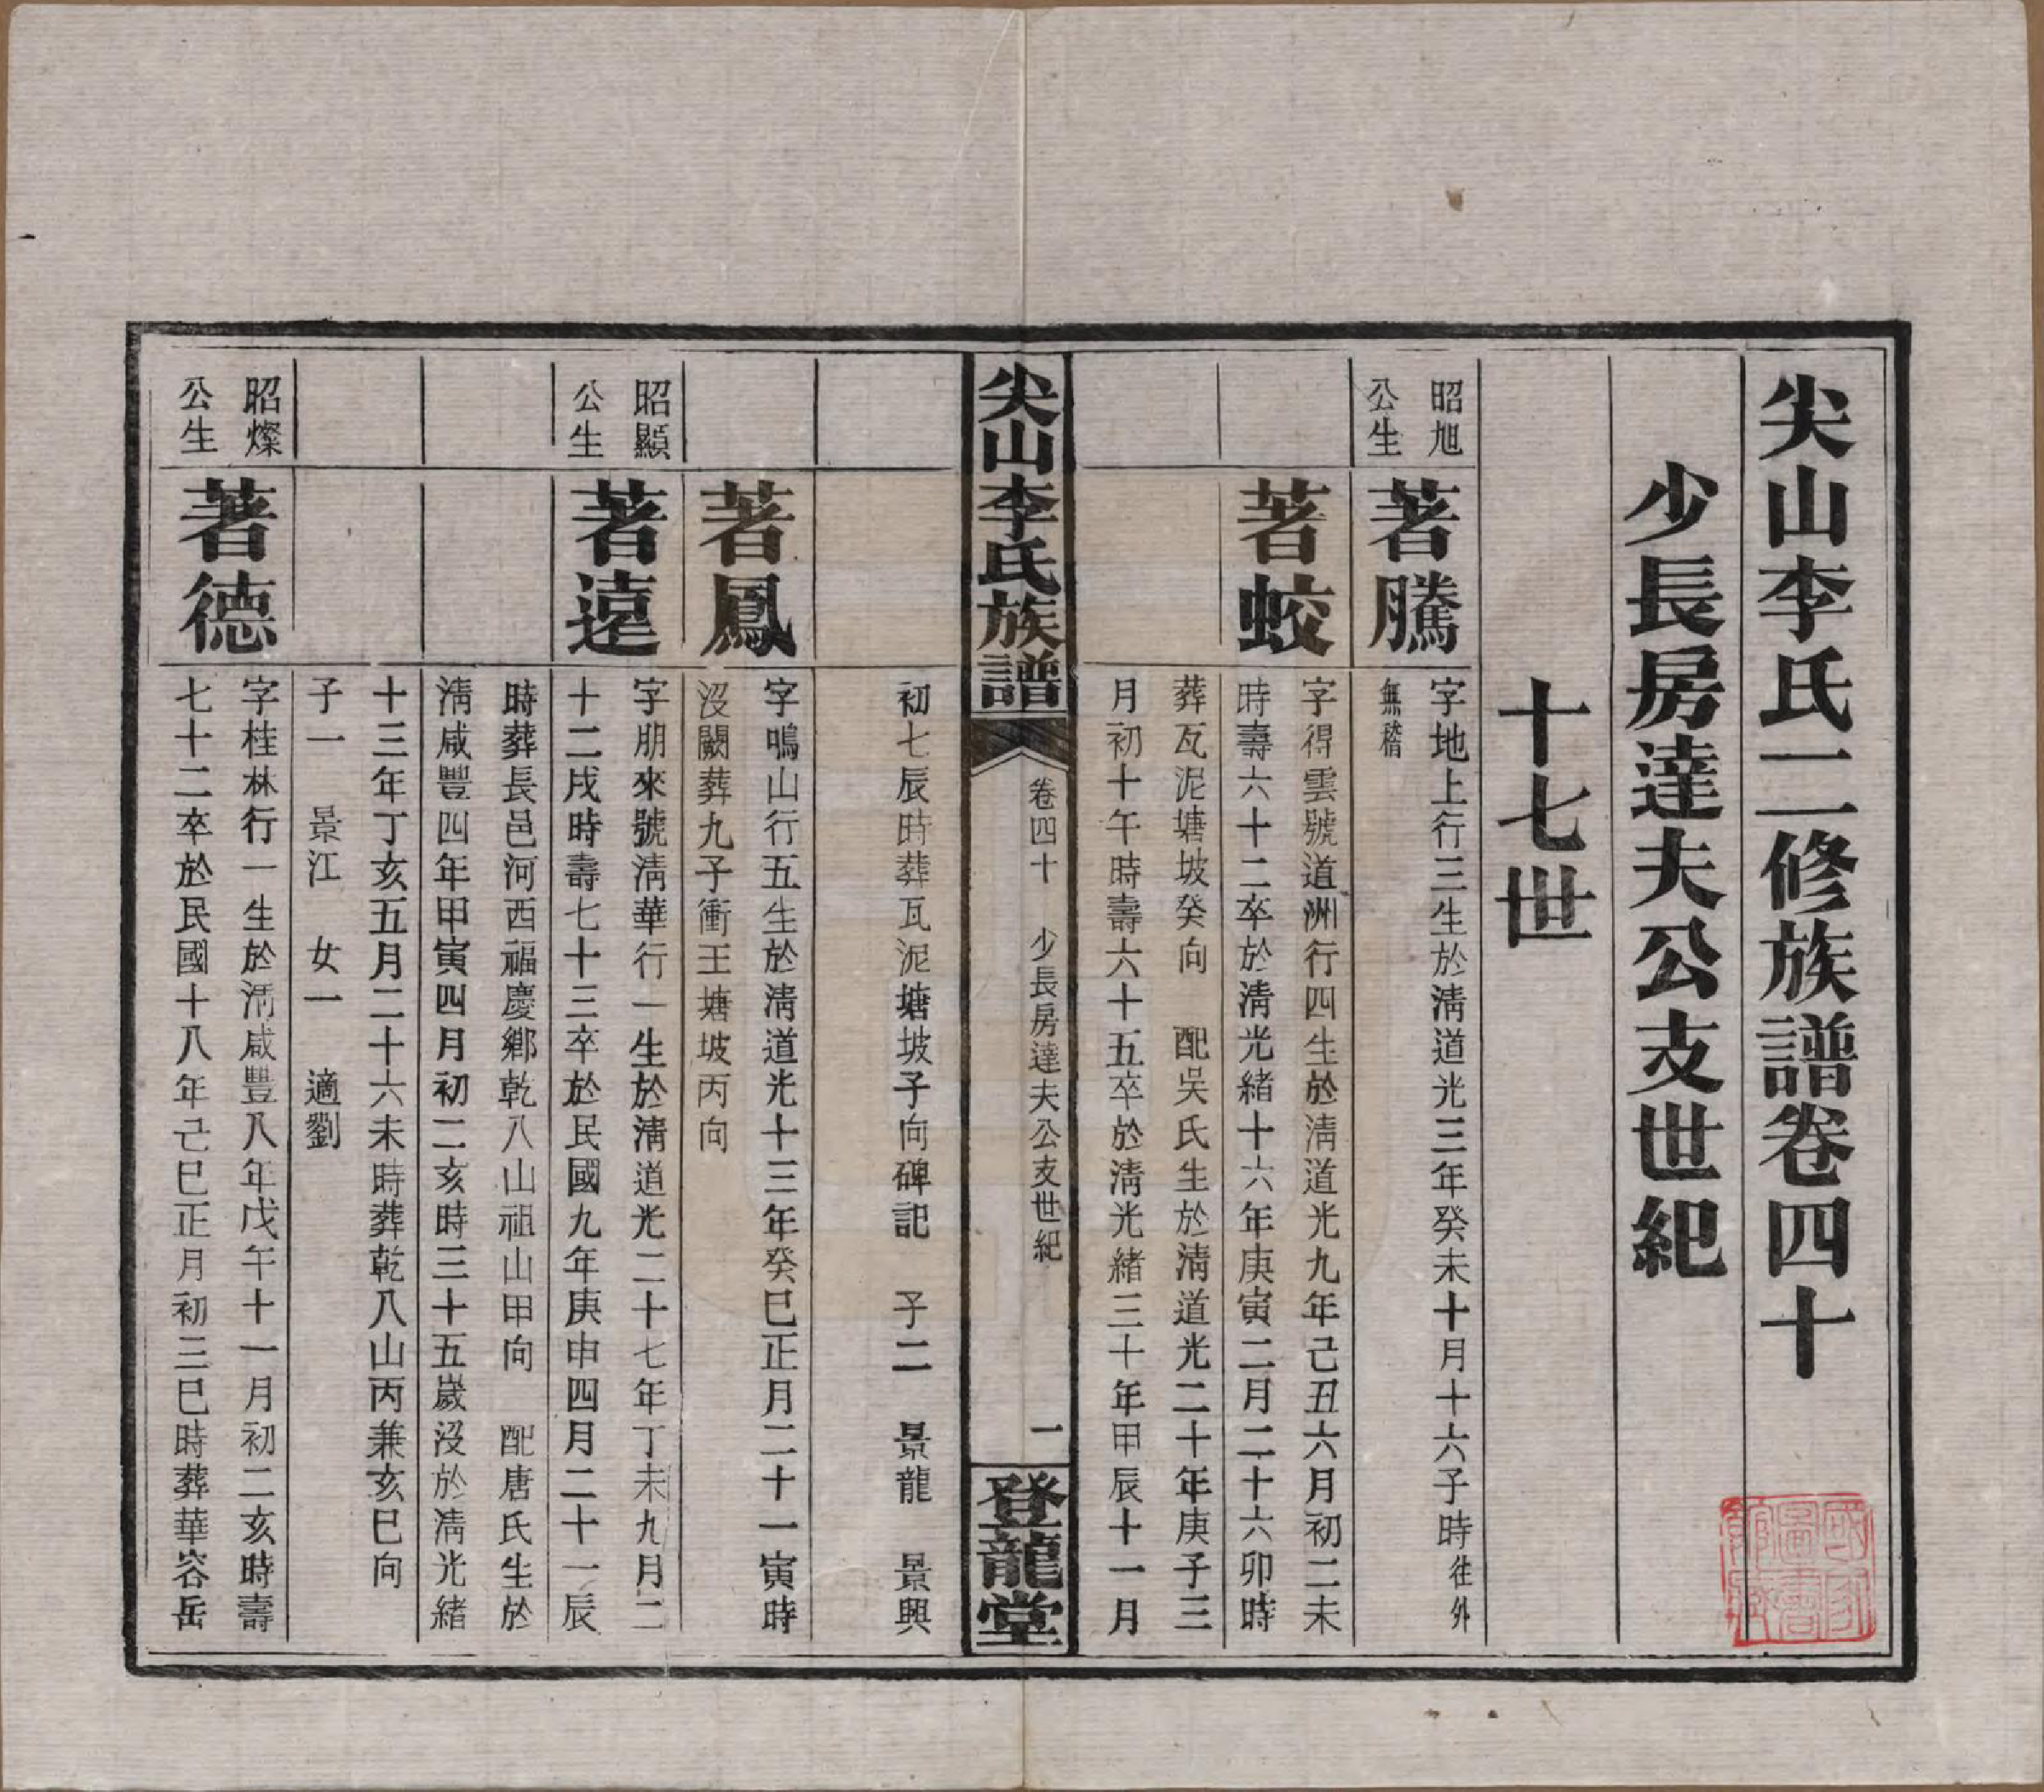 尖山李氏二修族譜卷四十
少長房達夫公支世紀
十七世
昭旭
公生
著騰
字地上行三生於淸道光三年癸未十月十六子時往外
無稽
著蛟
字得雲號道洲行四生於淸道光九年己丑六月初二未
時壽六十二卒於淸光緖十六年庚寅二月二十六卯時
葬瓦泥塘坡癸向　配吳氏生於淸道光二十年庚子三
月初十午時壽六十五卒於淸光緖三十年甲辰十一月
尖山李氏族譜
卷四十　少長房達夫公支世紀
一
登龍堂
初七辰時葬瓦泥塘坡子向碑記　子二　景龍　景興
著鳳
字鳴山行五生於淸道光十三年癸巳正月二十一寅時
沒闕葬九子衝王塘坡丙向
昭顯
公生
著遠
字朋來號淸華行一生於淸道光二十七年丁未九月二
十二戌時壽七十三卒於民國九年庚申四月二十一辰
時葬長邑河西福慶鄕乾八山祖山甲向　配唐氏生於
淸咸豐四年甲寅四月初二亥時三十五歲沒於淸光緖
十三年丁亥五月二十六未時葬乾八山丙兼亥巳向
子一　景江　女一　適劉
昭燦
公生
著德
字桂林行一生於淸咸豐八年戊午十一月初二亥時壽
七十二卒於民國十八年己巳正月初三巳時葬華容岳